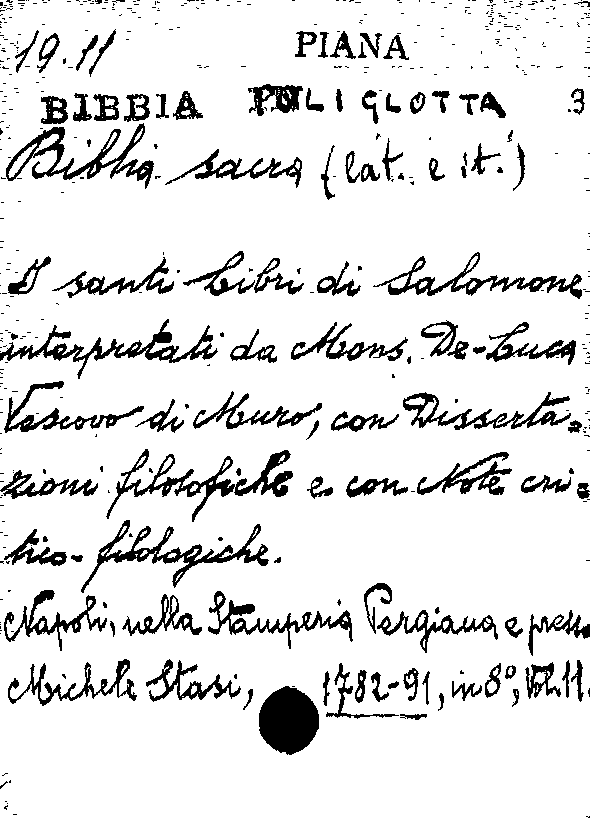 19.11 PIANA
BIBBIA POLIGLOTTA 3
Biblia sacra (lat. e it.)
I santi Libri di Salomone
interpretati da Mons. De-Luca
Vescovo di Muro, con Disserta=
zioni filosofiche e con Note cri=
tico-filologiche.
Napoli, nella Stamperia Pergiana e presso
Michele Stasi, 1782-91, in 8º, Vol. 11.